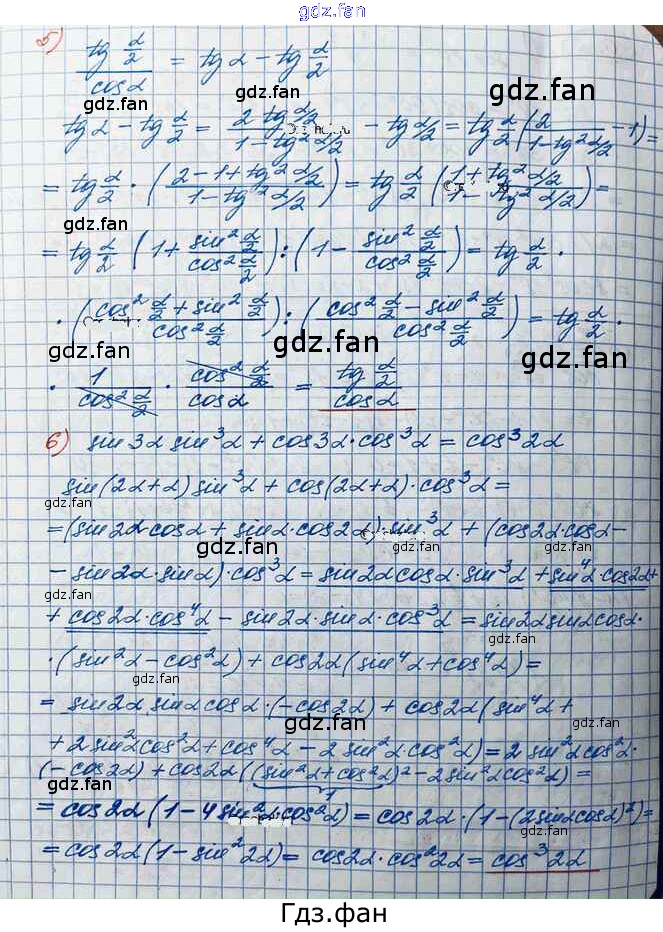 gdz.fan
5) (tg α/2)/(cos α) = tg α - tg α/2
tg α - tg α/2 = (2 tg α/2)/(1 - tg² α/2) - tg α/2 = tg α/2 (2/(1 - tg² α/2) - 1) =
= tg α/2 · ((2 - 1 + tg² α/2)/(1 - tg² α/2)) = tg α/2 ((1 + tg² α/2)/(1 - tg² α/2)) =
= tg α/2 (1 + (sin² α/2)/(cos² α/2)) : (1 - (sin² α/2)/(cos² α/2)) = tg α/2 ·
· ((cos² α/2 + sin² α/2)/(cos² α/2)) : ((cos² α/2 - sin² α/2)/(cos² α/2)) = tg α/2 ·
· 1/(cos² α/2) · (cos² α/2)/(cos α) = (tg α/2)/(cos α)
6) sin 3α sin³α + cos 3α · cos³α = cos³ 2α
sin(2α+α) sin³α + cos(2α+α) · cos³α =
= (sin 2α cos α + sin α · cos 2α) · sin³α + (cos 2α · cos α -
- sin 2α · sin α) · cos³α = sin 2α cos α · sin³α + sin⁴α · cos 2α +
+ cos 2α · cos⁴α - sin 2α · sin α · cos³α = sin 2α sin α cos α ·
· (sin²α - cos²α) + cos 2α (sin⁴α + cos⁴α) =
= sin 2α sin α cos α · (-cos 2α) + cos 2α (sin⁴α +
+ 2 sin²α cos²α + cos⁴α - 2 sin²α cos²α) = 2 sin²α cos²α ·
(-cos 2α) + cos 2α ((sin²α + cos²α)² - 2 sin²α cos²α) =
1
= cos 2α (1 - 4 sin²α cos²α) = cos 2α · (1 - (2 sin α cos α)²) =
= cos 2α (1 - sin² 2α) = cos 2α · cos² 2α = cos³ 2α
Гдз.фан